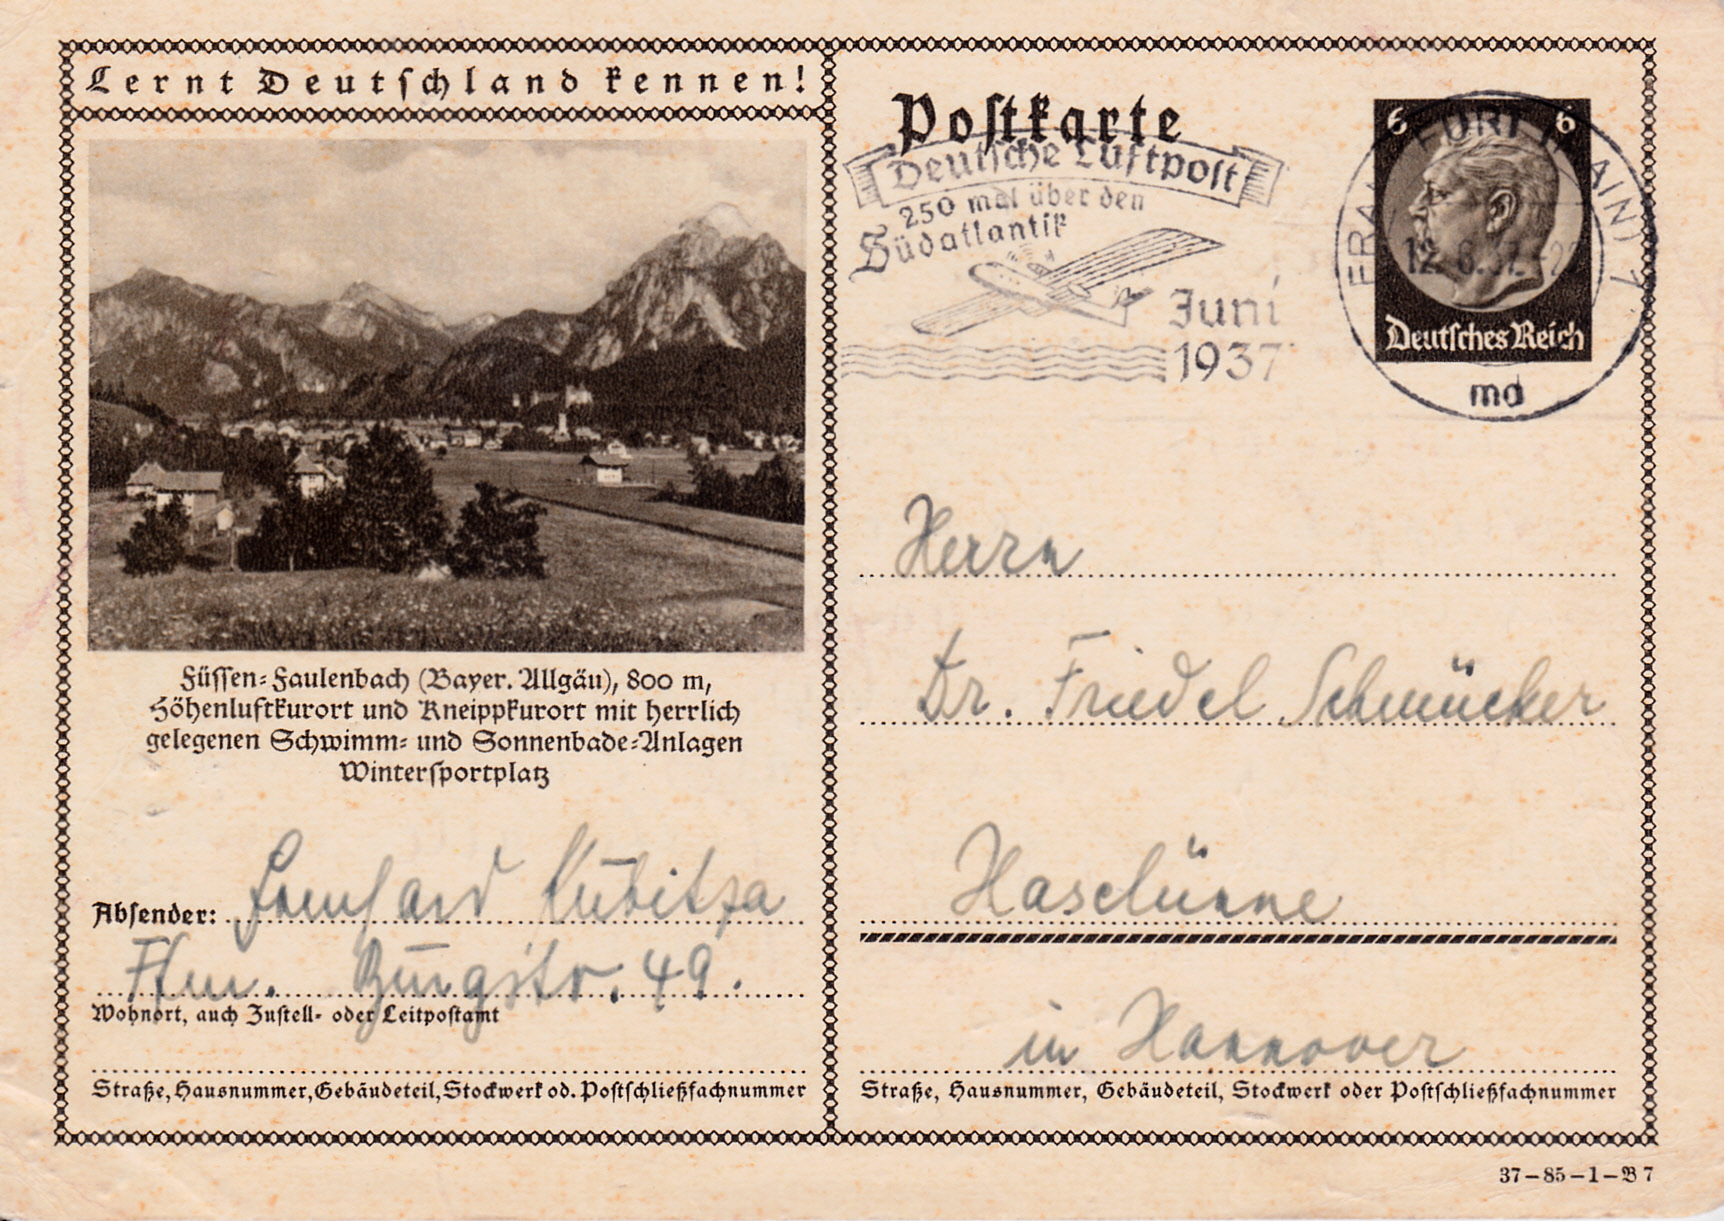 Lernt Deutschland kennen!
Füssen-Faulenbach (Bayer. Allgäu), 800 m,
Höhenluftkurort und Kneippkurort mit herrlich
gelegenen Schwimm- und Sonnenbade-Anlagen
Wintersportplatz
Absender: Kubitza
Ffm. Burgstr. 49.
Wohnort, auch Zustell- oder Leitpostamt
Straße, Hausnummer, Gebäudeteil, Stockwerk od. Postschließfachnummer
Postkarte
Deutsche Luftpost
250 mal über den
Südatlantik
Juni
1937
6 6
Deutsches Reich
FRANKFURT (MAIN) 7
12.6.37.
md
Herrn
Dr. Friedel Schmücker
Haselünne
in Hannover
Straße, Hausnummer, Gebäudeteil, Stockwerk oder Postschließfachnummer
37-85-1-B 7